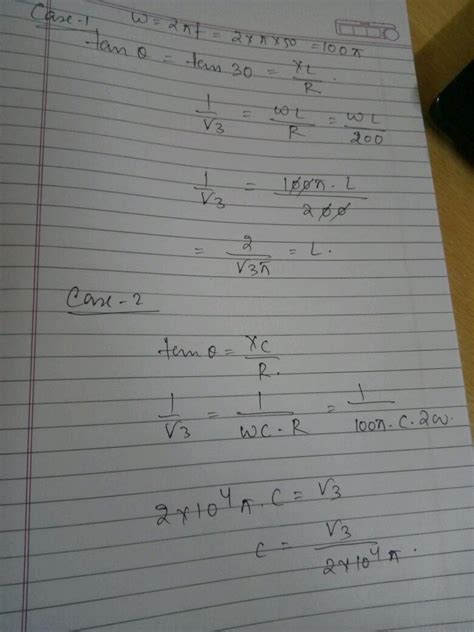 Case-1
W = 2πf = 2×π×50 = 100π
tan θ = tan 30 = XL/R.
1/√3 = WL/R = WL/200
1/√3 = 100π.L/200
= 2/√3π = L.
Case-2
tan θ = XC/R.
1/√3 = 1/WC.R = 1/100π.C.200.
2×10⁴π.C = √3
C = √3/2×10⁴π.